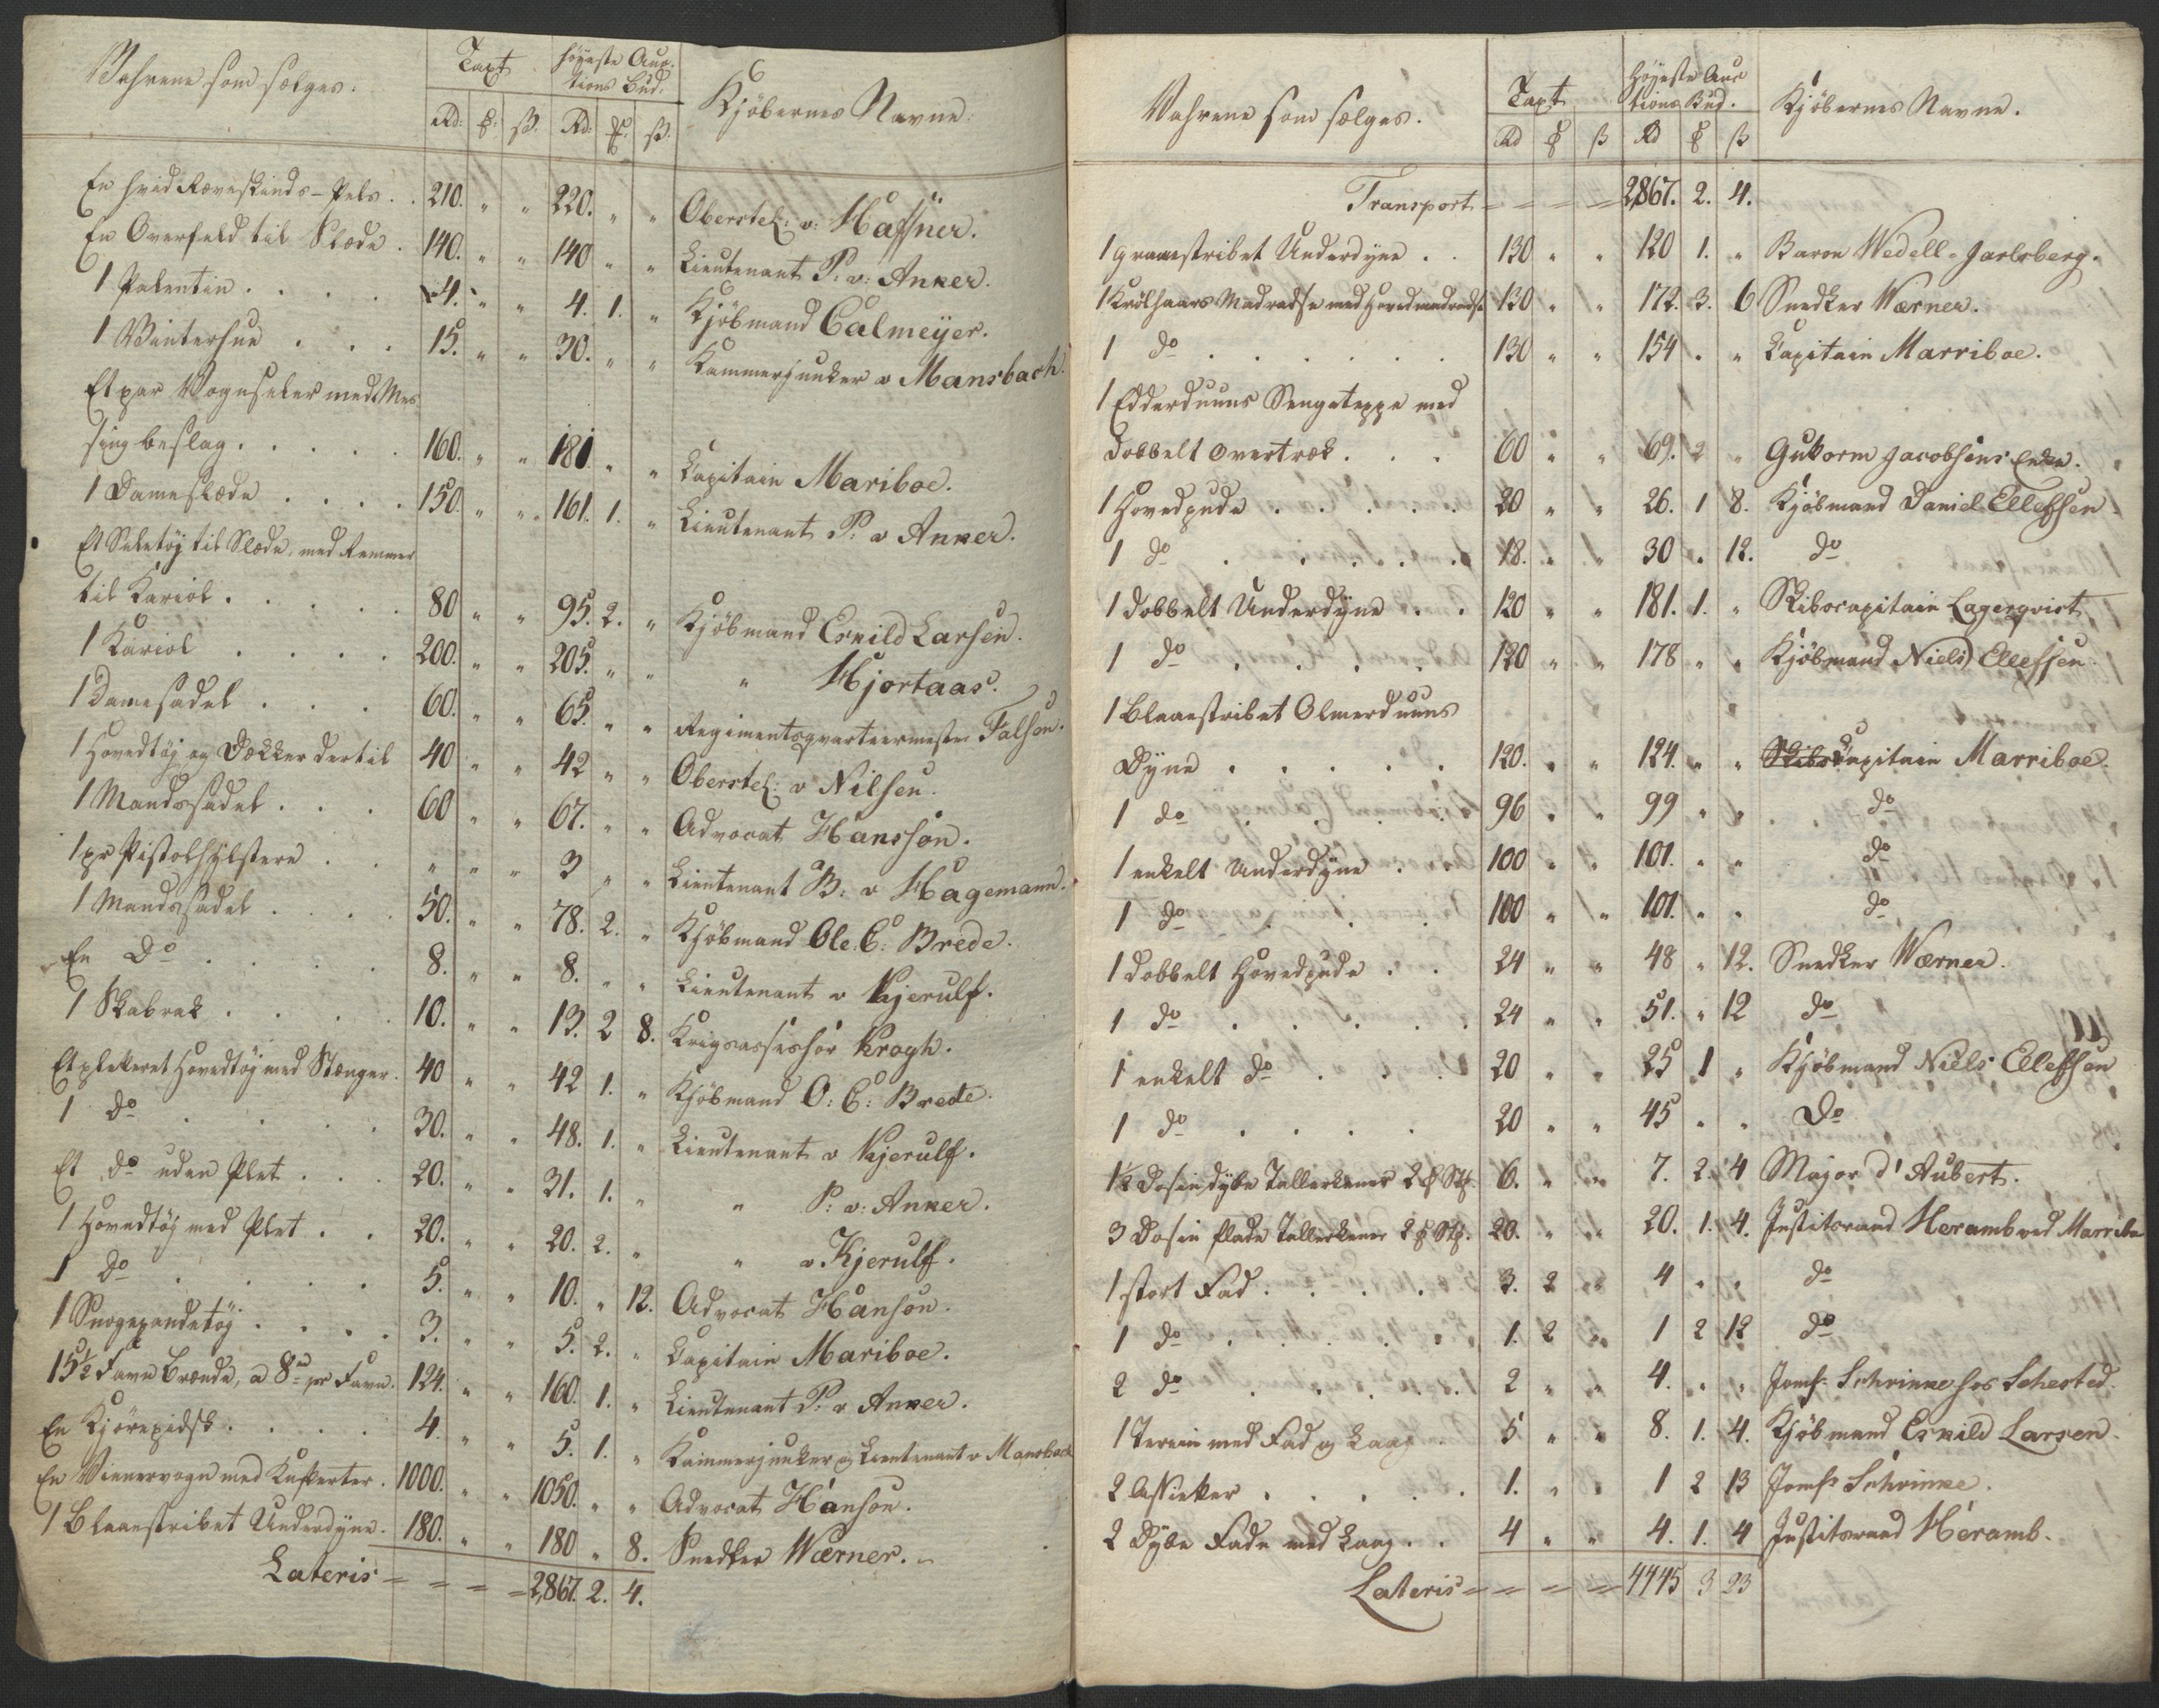 Vahrene som sælges. Taxt høyeste Auc- Kjöbernes Navne.
tions Bud.
Rd: ß. Rd: ß.
En hvid Ræveskinds-Pels . . 210. " " 220. " " Oberstel: v: Haffner.
En Overfeld til Slæde . 140. " " 140 " " Lieutenant P. v: Anker.
1 Palentin . . . . 4. " " 4. 1. " Kjöbmand Calmeÿer.
1 Vinterhue . . . 15. " " 30. " " Kammerjunker v Mansbach.
Et par Vognseler med Mes
sing beslag . . . . . 160. " " 181 " " Capitain Mariboe.
1 Dameslæde . . . . 150. " " 161. 1. " Lieutenant P. v Anker.
Et Seletøj til Slæde, med Remmer
til Kariol . . . . . 80 " " 95. 2. " Kjöbmand Eskild Larsen.
1 Kariol . . . . 200. " " 205. " " " Hjortaas.
1 Damesadel . . . 60. " " 65. " " Regimentsqvarteermester Falsen.
1 Hovedtöj og Dækker dertil 40 " " 42 " " Oberstel: v Nilsen.
1 Mandssadel . . . 60 " " 67. " " Advocat Hansson.
1 pr Pistolhylstere . . " " " 3 " " Lieutenant B: v Hagemann.
1 Mandssadel . . . . 50. " " 78. 2. " Kjöbmand Ole. C: Brede.
En Do . . . . 8. " " 8. " " Lieutenant v Kjerulf.
1 Skabrak . . . . 10. " " 13. 2 8. Krigsassessor Krogh.
Et pletteret Hovedtöj med Stænger. 40 " " 42 1. " Kjöbmand O: C: Brede.
1 do . . . . 30. " " 48. 1. " Lieutenant v Kjerulf.
Et do uden Plet . . . 20. " " 31. 1. " " P: v: Anker.
1 Hovedtöj med Plet . . 20. " " 20. 2. " " v. Kjerulf.
1 do . . . . 5. " " 10. " 12. Advocat Hanson.
1 . . . . 3. " " 5. 2. " Capitain Mariboe.
15½ Favn Brænde, a 8 pr Favn. 124. " " 160. 1. " Lieutenant P. v Anker.
En Kjörepidsk . . . . 4. " " 5. 1. " Kammerjunker og Lieutenant v Mansbach
En Vienervogn med Kufferter. 1000. " " 1050. " " Advocat Hanson.
1 Blaaestribet Underdyne. 180. " " 180 " 8. Snedker Wærner.
Lateris = = = = 2,867. 2. 4.
Vahrene som sælges. Taxt Höyeste Auc Kjöbernes Navne.
tions Bud.
Rd ß Rd ß
Transport = = = = 2,867. 2. 4.
1 graaestribet Underdyne . . 130 " " 120 1. " Baron Wedell-Jarlsberg.
1 Krölhaars Madradse med Hovedmadradse 130 " " 172. 3. 6 Snedker Wærner.
1 do . . . . . . 130 " " 154 " " Capitain Marriboe.
1 Edderduuns Sengeteppe med
dobbelt overtræk . . . 60 " " 69. 2 " Guttorm Jacobsens Enke.
1 Hovedpude . . . . . 20 " " 26. 1 8. Kjöbmand Daniel Ellefsen
1 do . . . . . 18. " " 30 " 12. do
1 dobbelt Underdyne . . 120 " " 181. 1. " Skibscapitain Lagerqvist
1 do . . . . 120 " " 178 " " Kjöbmand Niels Ellefsen
1 Blaaestribet Olmerduuns
Dyne . . . . . 120. " " 124. " " Skibs Capitain Marriboe.
1 do . . . . 96 " " 99 " " do
1 enkelt Underdyne . . 100 " " 101. " " do
1 do . . . 100 " " 101. " " do
1 dobbelt Hovedpude . . 24 " " 48 " 12. Snedker Wærner.
1 do . . . . . 24 " " 51. " 12 do
1 enkelt do . . . 20 " " 25 1 " Kjöbmand Niels Ellefsen
1 do . . . . 20 " " 45 " " Do
1½ Dosin dybe Tallerkener 6. " " 7. 2. 4 Major d'Aubert.
3 Dosin flade Tallerkener 20. " " 20. 1. 4. Justitsraad Heramb ved Marriboe
1 stort Fad . . . . 3. 2 " 4 " " do
1 do . . . . . 1. 2 " 1 2 12 do
2 do . . . . . 2 " " 4. " " Jomf. Schrinke hos Schested.
1 Terrin med Fad og Laag . 5 " " 8. 1. 4. Kjöbmand Eskild Larsen.
2 Assietter . . . . . 1. " " 1 2 13 Jomf. Schrinke.
2 Dybe Fade med Laag . . 4 " " 4. 1. 4 Justitsraad Heramb.
Lateris = = = = 4445 3 23